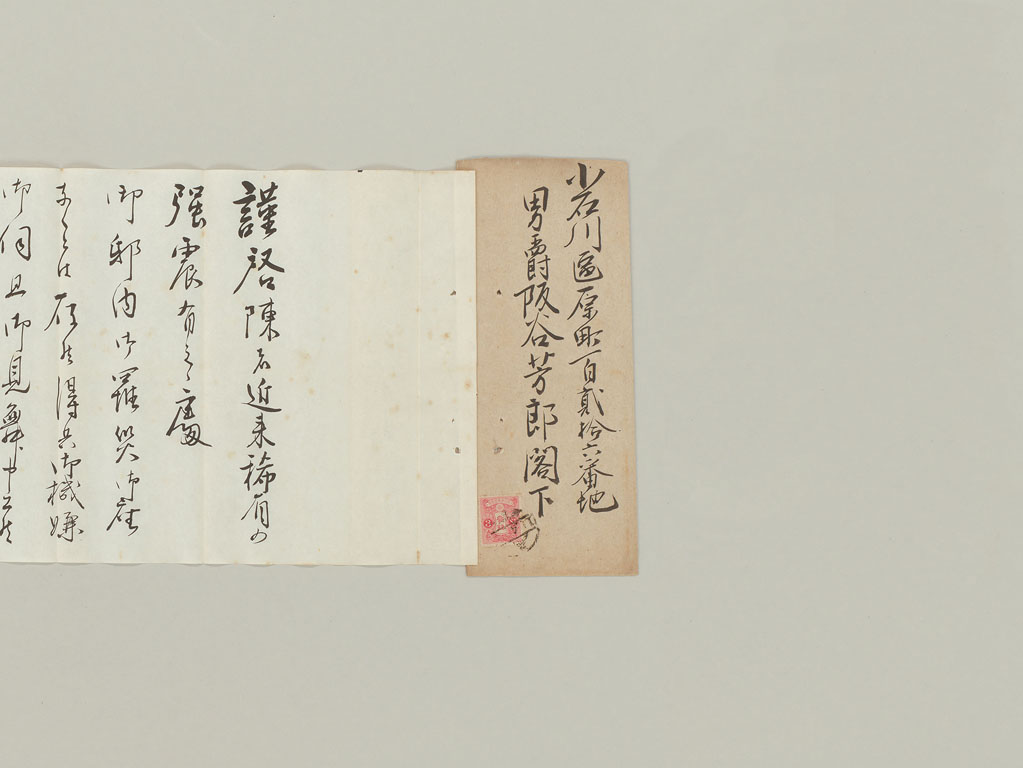 小石川區原町百貳拾六番地
男爵阪谷芳郎閣下
謹啓陳者近来稀有の
强震有之處
御邸内御羅災御座
なく候
得共御機嫌
御伺且御見舞申上候